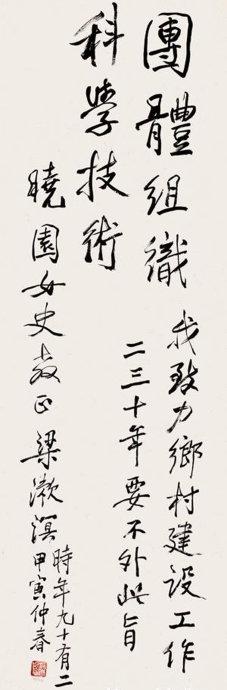 團體組織
科學技術
我致力鄉村建設工作
二三十年要不外此旨
曉園女史教正 梁漱溟
時年九十有二
甲寅仲春